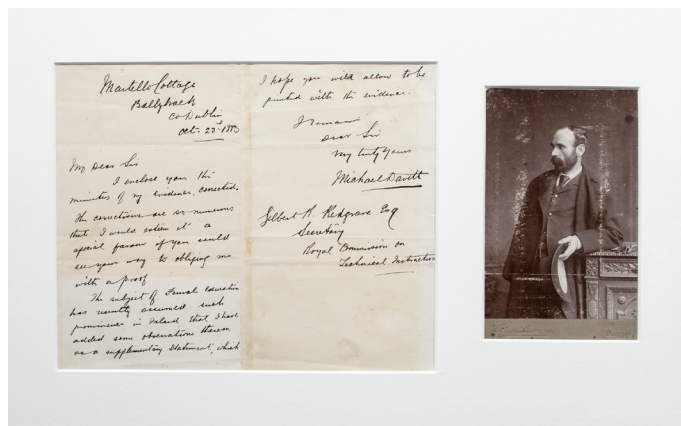 Martello Cottage
Ballybrack
Co Dublin
Oct. 23rd 1883
My Dear Sir
I enclose you the
minutes of my evidence, corrected.
The corrections are so numerous
that I would esteem it a
special favour if you could
see your way to obliging me
with a proof
The subject of Female Education
has recently assumed such
prominence in Ireland that I have
added some observations thereon
as a supplementary statement, which
I hope you will allow to be
printed with the evidence.
I remain
Dear Sir
very truly yours
Michael Davitt
Gilbert R. Redgrave Esq
Secretary
Royal Commission on
Technical Instruction